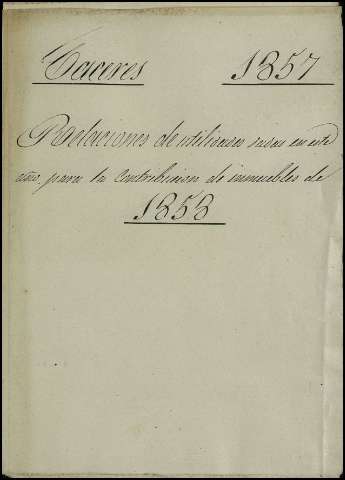 Caceres 1857
Relaciones de utilidades dadas en este
año para la Contribucion de inmuebles de
1858